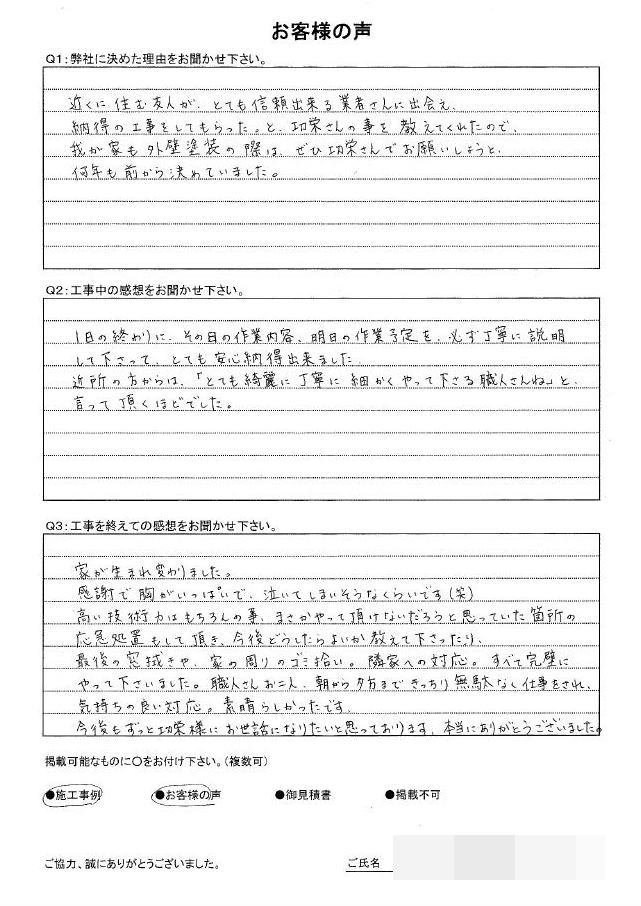 お客様の声
Q1:弊社に決めた理由をお聞かせ下さい。
近くに住む友人が、とても信頼出来る業者さんに出会え、
納得の工事をしてもらった。と、功栄さんの事を教えてくれたので、
我が家も外壁塗装の際は、ぜひ功栄さんでお願いしようと、
何年も前から決めていました。
Q2:工事中の感想をお聞かせ下さい。
1日の終わりに、その日の作業内容、明日の作業予定を、必ず丁寧に説明
して下さって、とても安心納得出来ました。
近所の方からは、「とても綺麗に丁寧に細かくやって下さる職人さんね」と、
言って頂くほどでした。
Q3:工事を終えての感想をお聞かせ下さい。
家が生まれ変わりました。
感謝で胸がいっぱいで、泣いてしまいそうなくらいです(笑)
高い技術力はもちろんの事、まさかやって頂けないだろうと思っていた箇所の
応急処置もして頂き、今後どうしたらよいか教えて下さったり、
最後の窓拭きや、家の周りのゴミ拾い。隣家への対応。すべて完璧に
やって下さいました。職人さんお二人、朝から夕方まできっちり無駄なし仕事をされ、
気持ちの良い対応。素晴らしかったです。
今後もずっと功栄様にお世話になりたいと思っております。本当にありがとうございました。
掲載可能なものに〇をお付け下さい。(複数可)
●施工事例 ●お客様の声 ●御見積書 ●掲載不可
ご協力、誠にありがとうございました。 ご氏名